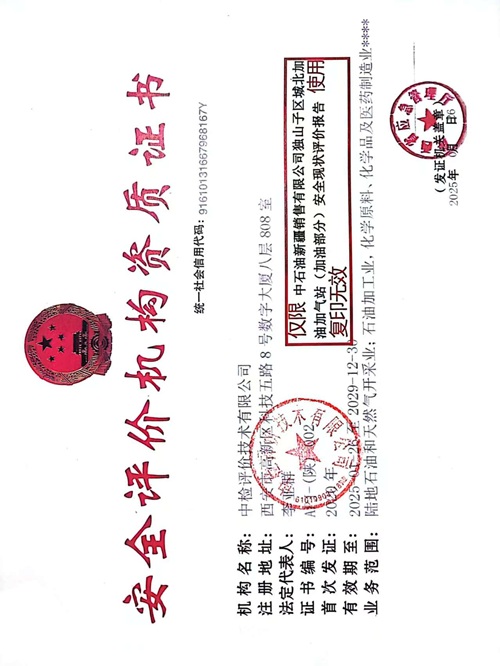 安全评价机构资质证书
统一社会信用代码: 91610131667968167Y
机构名称: 中检评价技术有限公司
注册地址: 西安市高新区科技五路8号数字大厦八层808室
法定代表人:
证书编号: 002
首次发证:
有效期至: 2029-12-30
业务范围: 陆地石油和天然气开采业; 石油加工业, 化学原料、化学品及医药制造业****
仅限 中石油新疆销售有限公司独山子区城北加
油加气站(加油部分)安全现状评价报告 使用
复印无效
技术有限公司
应急管理
(发证机关盖章)
2025年